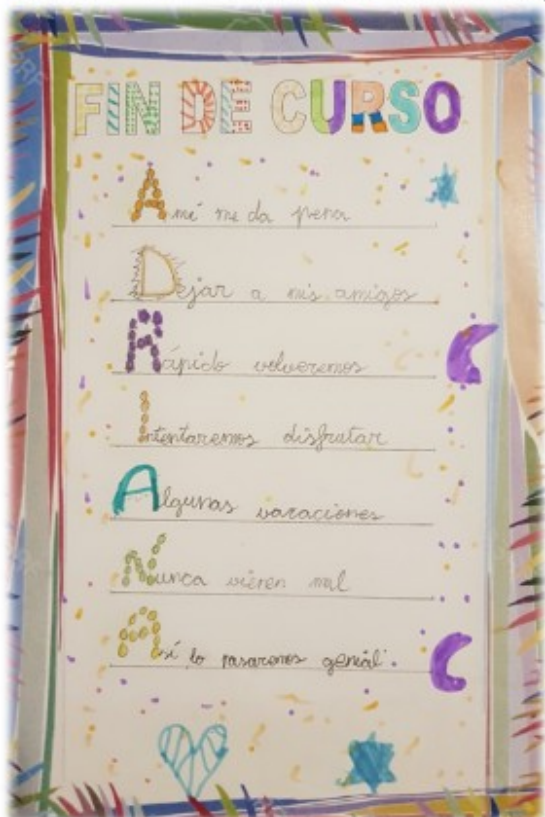 FIN DE CURSO
A mi me da pena
Dejar a mis amigos
Rápido volveremos
Intentaremos disfrutar
Algunas vacaciones
Nunca vienen mal
Así lo pasaremos genial.